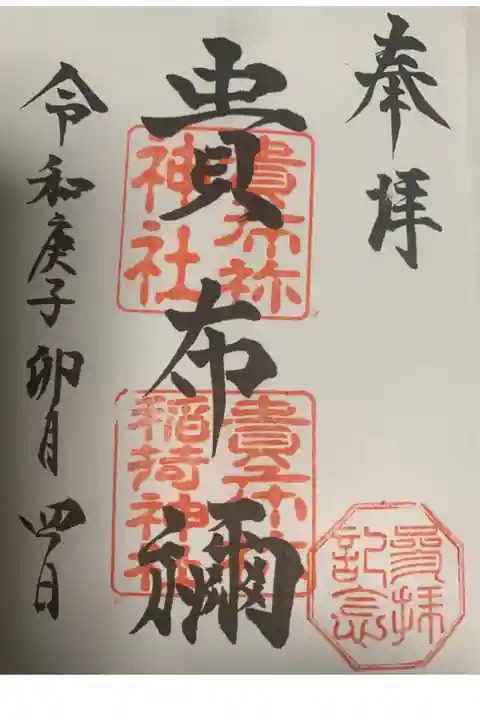 奉拝
貴布禰
令和庚子卯月四日
貴布祢
神社
貴布祢
稲荷神社
参拝
記念